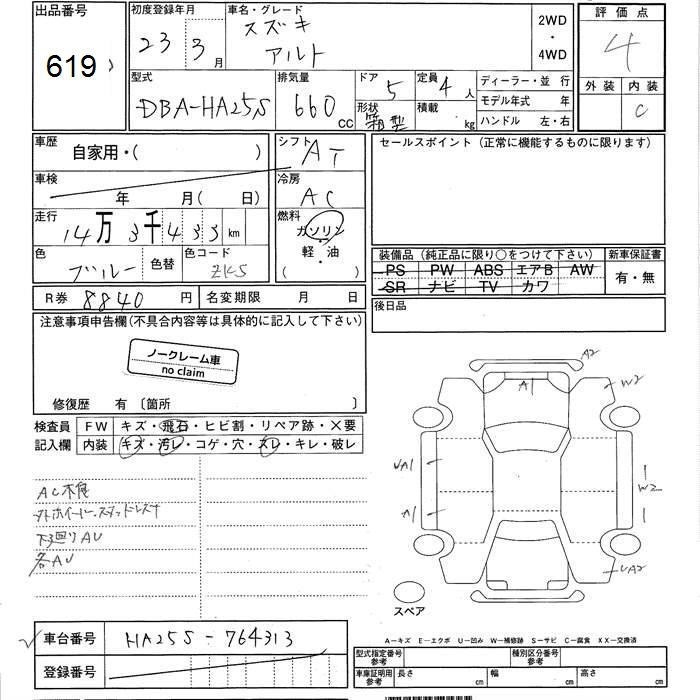 出品番号
619
初度登録年月
23 3月
車名・グレード
スズキ
アルト
2WD
・
4WD
評価点
4
外装 内装
C
型式
DBA-HA25S
排気量
660
CC
ドア
5
定員
4人
形状
箱型
積載
kg
ディーラー・並行
モデル年式 年
ハンドル 左・右
車歴
自家用・( )
車検
年 月( 日)
走行
14万3千433km
色
ブルー
色替
色コード
ZKS
シフト
AT
冷房
AC
燃料
ガソリン
・
軽・油
( )
セールスポイント (正常に機能するものに限ります)
装備品 (純正品に限り○をつけて下さい)
PS PW ABS エアB AW
SR ナビ TV カワ
新車保証書
有・無
R券 8840円
名変期限 月 日
後日品
注意事項申告欄(不具合内容等は具体的に記入して下さい)
ノークレーム車
no claim
修復歴 有〔箇所 〕
検査員
記入欄
FW キズ・飛石・ヒビ割・リペア跡・X要
内装 キズ・汚レ・コゲ・穴・スレ・キレ・破レ
AC不良
外ホイール、スタッドレス
下廻りAU
各AU
A2
A1
W2
UA1
A1
W2
UA2
スペア
車台番号 HA25S-764313
登録番号
A-キズ E-エクボ U-凹み W-補修跡 S-サビ C-腐食 XX-交換済
型式指定番号
参考
種別区分番号
参考
車庫証明用
参考
長さ cm
幅 cm
高さ cm